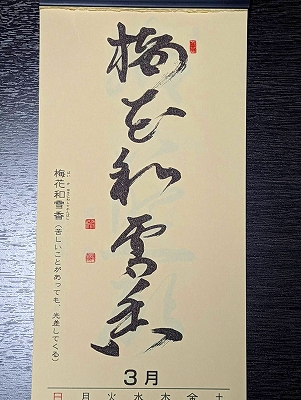 梅花和雪香
梅花和雪香(苦しいことがあっても、光差してくる)
3月
日 月 火 水 木 金 土